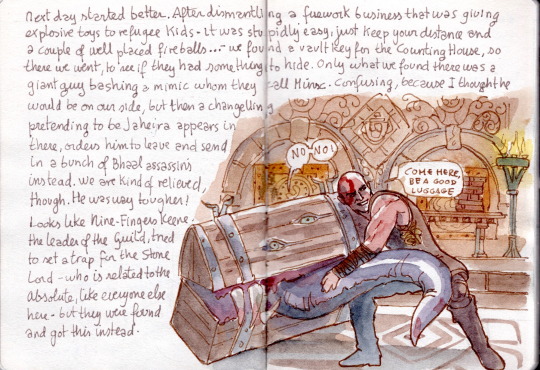 next day started better. After dismantling a firework business that was giving
explosive toys to refugee kids - it was stupidly easy, just keep your distance and
a couple of well placed fireballs...- we found a vault key for the Counting House, so
there we went, to see if they had something to hide. Only what we found there was a
giant guy bashing a mimic whom they call Minsc. Confusing, because I thought he
would be on our side, but then a changeling
pretending to be Jaheira appears in
there, orders him to leave and send
in a bunch of Bhaal assassins
instead. We are kind of relieved,
though. He was way tougher!
Looks like Nine-Fingers Keene,
the leader of the Guild, tried
to set a trap for the Stone
Lord - who is related to the
Absolute, like everyone else
here - but they were found
and got this instead.
NO-NO!
COME HERE,
BE A GOOD
LUGGAGE